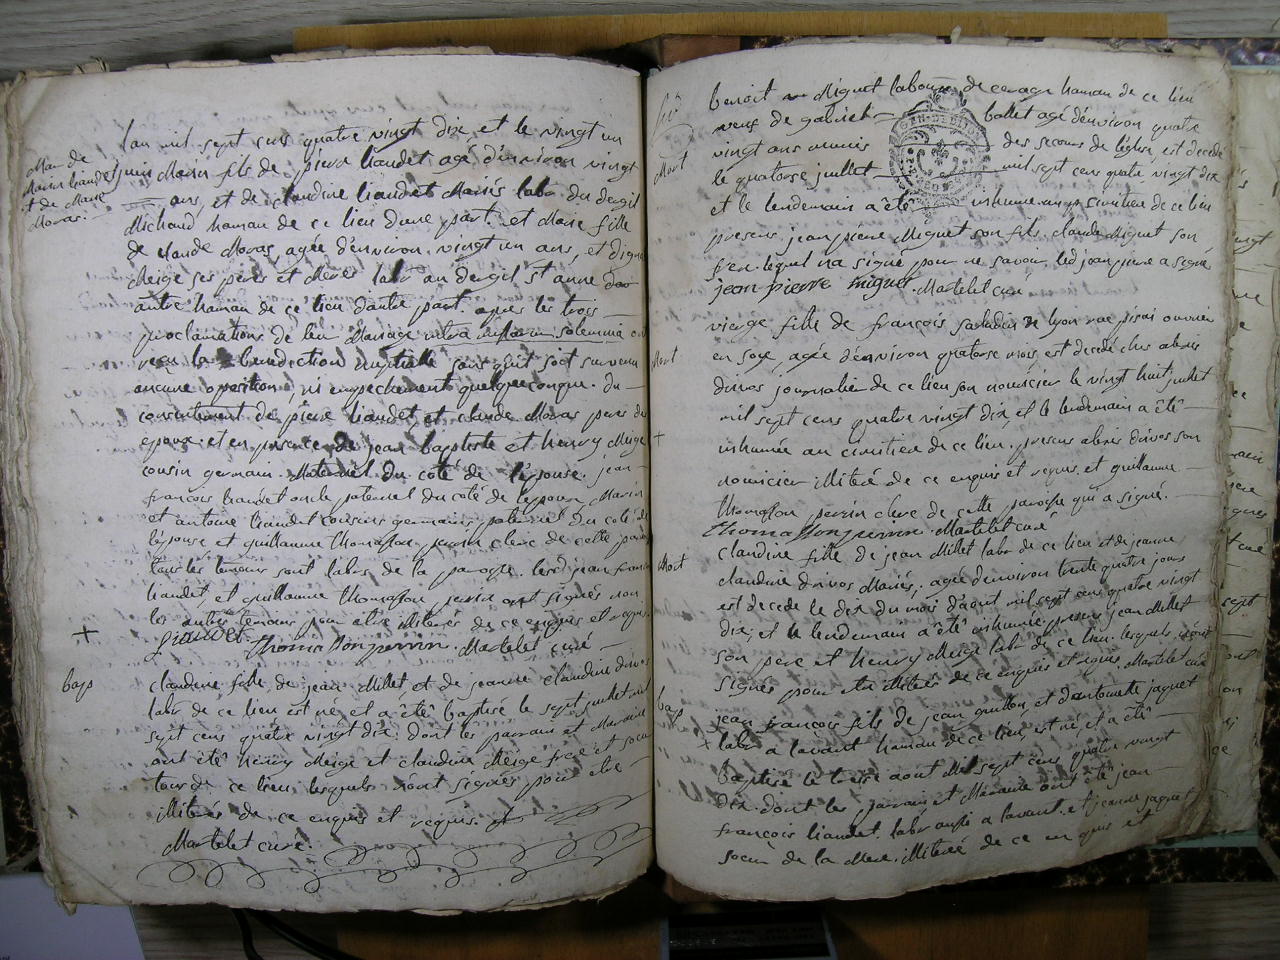 Mar. de
Marin Liaudet
et de Marie
Moras.
Lan mil sept cens quatre vingt dix et le vingt un
juin Marin fils de pierre Liaudet agé d'environ vingt
ans, et de claudine Liaudet Mariés labr du
Michaud haman de ce lieu d'une part. et Marie fille
de claude Moras, agée d'environ vingt un ans, et
Meige ses peres et Meres labr au st anne
autre haman de ce lieu d'autre part. apres les trois
proclamations de leur Mariage
recu la benediction nuptiale sans qu'il soit survenu
aucune oposition, ni empechement quelqueconque. du
consentement de pierre Liaudet et claude Moras peres des
epoux. et en presence de jean baptiste et henry Meige
cousin germain Maternel du coté de l'épouse. jean
françois Liaudet oncle paternel du coté de l'epoux, Marin
et antoine Liaudet cousins germains paternel du coté de
l'épouse et guillaume Thomasson perrin clerc de cette
tous les temoins sont labrs de la paroisse. lesd jean
Liaudet, et guillaume Thomasson perrin ont signés non
les autres temoins pour etre illiterés de ce enquis et requis.
+ Liaudet. Thomasson perrin. Martelet curé
bap
claudine fille de jean Millet et de jeanne claudine drivos
labr de ce lieu est né et a été baptisé le sept juillet mil
sept cens quatre vingt dix. dont les parrain et Marraine
ont été henry Meige et claudine Meige frere et soeur
tous de ce lieu, lesquels n'ont signés pour etre
illiterés de ce enquis et requis.
Martelet curé.
benoit Miguet haman de ce lieu
veuf de ballet agé d'environ quatre
Mort
vingt ans munis des secours de l'église, est decedé
le quatorse juillet mil sept cens quatre vingt dix
et le lendemain a été inhumé au cimitiere de ce lieu
presens jean pierre Miguet son fils claude Miguet son
frere lequel n'a signé pour ne savoir. led jean pierre a signé
jean pierre miguet. Martelet curé
vierge fille de françois Saladin de lyon rue pisai ouvrier
Mort
en soye, agée d'environ quatorse mois, est decedé ches
drivos journalier de ce lieu son nouricier le vingt huit juillet
mil sept cens quatre vingt dix, et le lendemain a été
+
inhumée au cimitiere de ce lieu. presens drivos son
nouricier illiteré de ce enquis et requis. et guillaume
Thomasson perrin clerc de cette paroisse qui a signé.
Thomasson perrin Martelet curé
Mort
claudine fille de jean Millet labr de ce lieu et de jeanne
claudine drivos Mariés, agée d'environ trente quatre jours
est decedé le dix du mois d'aout mil sept cens quatre vingt
dix, et le lendemain a été inhumée presens jean Millet
son pere et henry Meige labr de ce lieu. lesquels n'ont
signés pour etre illiterés de ce enquis et requis. Martelet curé
bap
jean françois fils de jean guillon et d'antoinette jaquet
labr a lavant haman de ce lieu, est né et a été
baptisé le treise aout Mil sept cens quatre vingt
dix. dont les parrain et Maraine ont été jean
françois Liaudet. labr aussi a lavant. et jeanne jaquet
soeur de la Mere. illiterée de ce enquis et